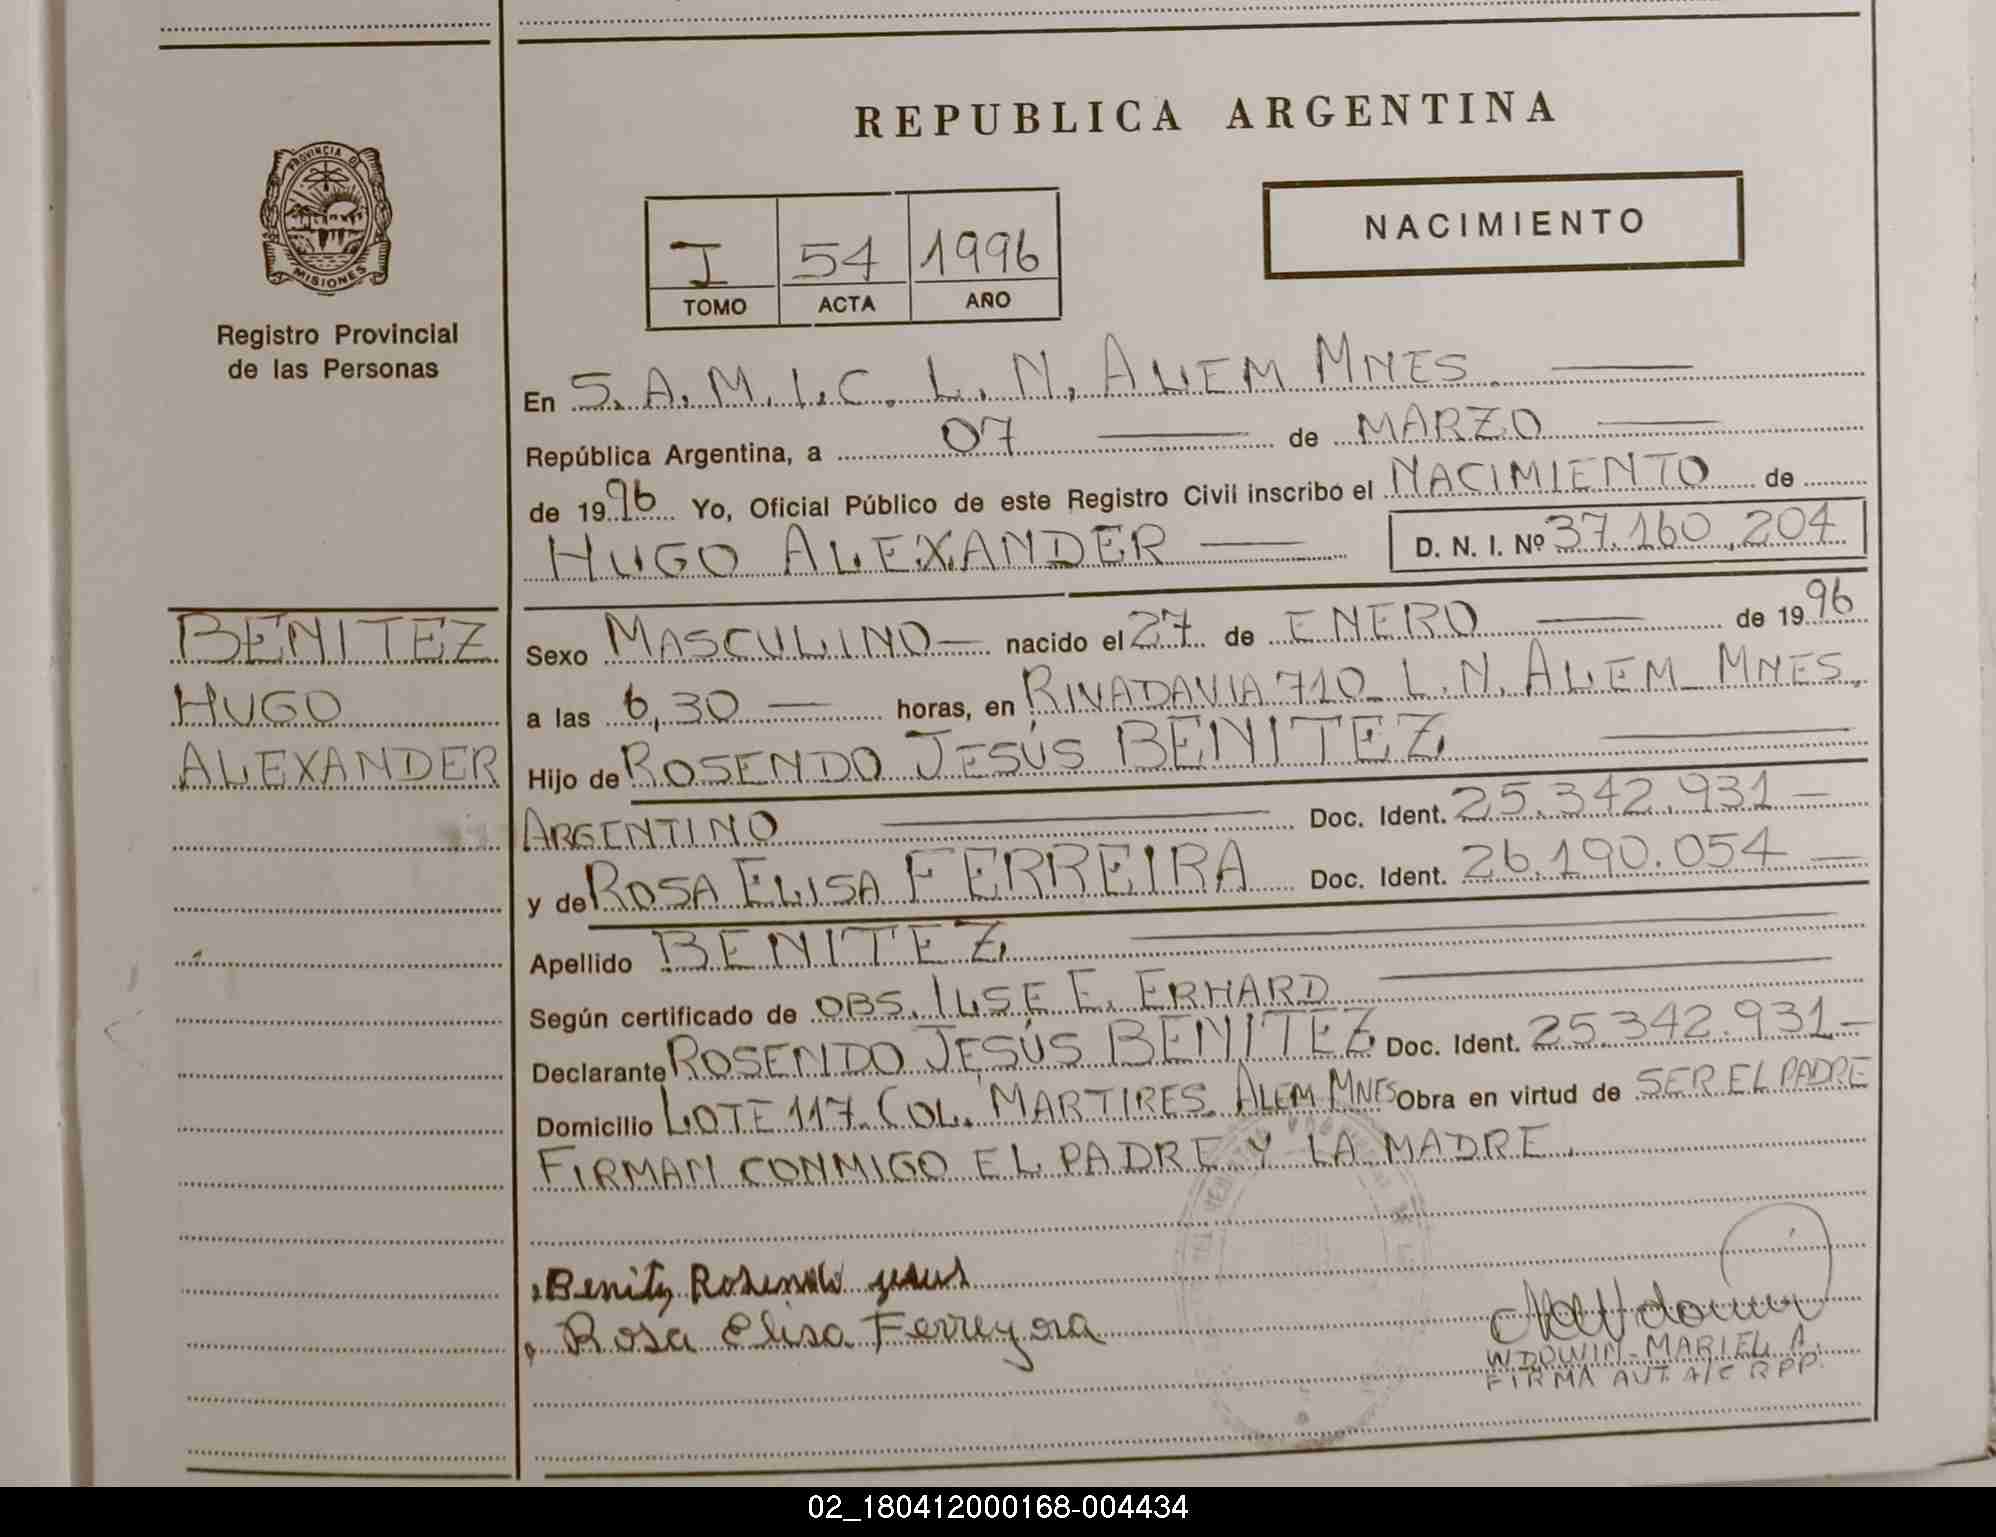 REPUBLICA ARGENTINA
PROVINCIA DE
MISIONES
Registro Provincial
de las Personas
NACIMIENTO
I 54 1996
TOMO ACTA AÑO
En S.A.M.I.C. L.N. ALEM MNES.
República Argentina, a 07 de MARZO
de 1996 Yo, Oficial Público de este Registro Civil inscribo el NACIMIENTO de
HUGO ALEXANDER D. N. I. Nº 37.160.204
BENITEZ
HUGO
ALEXANDER
Sexo MASCULINO nacido el 27 de ENERO de 1996
a las 6,30 horas, en RIVADAVIA 710 L.N. ALEM MNES.
Hijo de ROSENDO JESÚS BENITEZ
ARGENTINO Doc. Ident. 25.342.931
y de ROSA ELISA FERREIRA Doc. Ident. 26.190.054
Apellido BENITEZ
Según certificado de OBS. ILSE E. ERHARD
Declarante ROSENDO JESÚS BENITEZ Doc. Ident. 25.342.931
Domicilio LOTE 117. COL. MARTIRES. ALEM MNES Obra en virtud de SER EL PADRE
FIRMAN CONMIGO EL PADRE Y LA MADRE.
Benitez Rosendo Jesus
Rosa Elisa Ferreyra
WDOWIN - MARIEL A.
FIRMA AUT. A/C RPP.
02_180412000168-004434